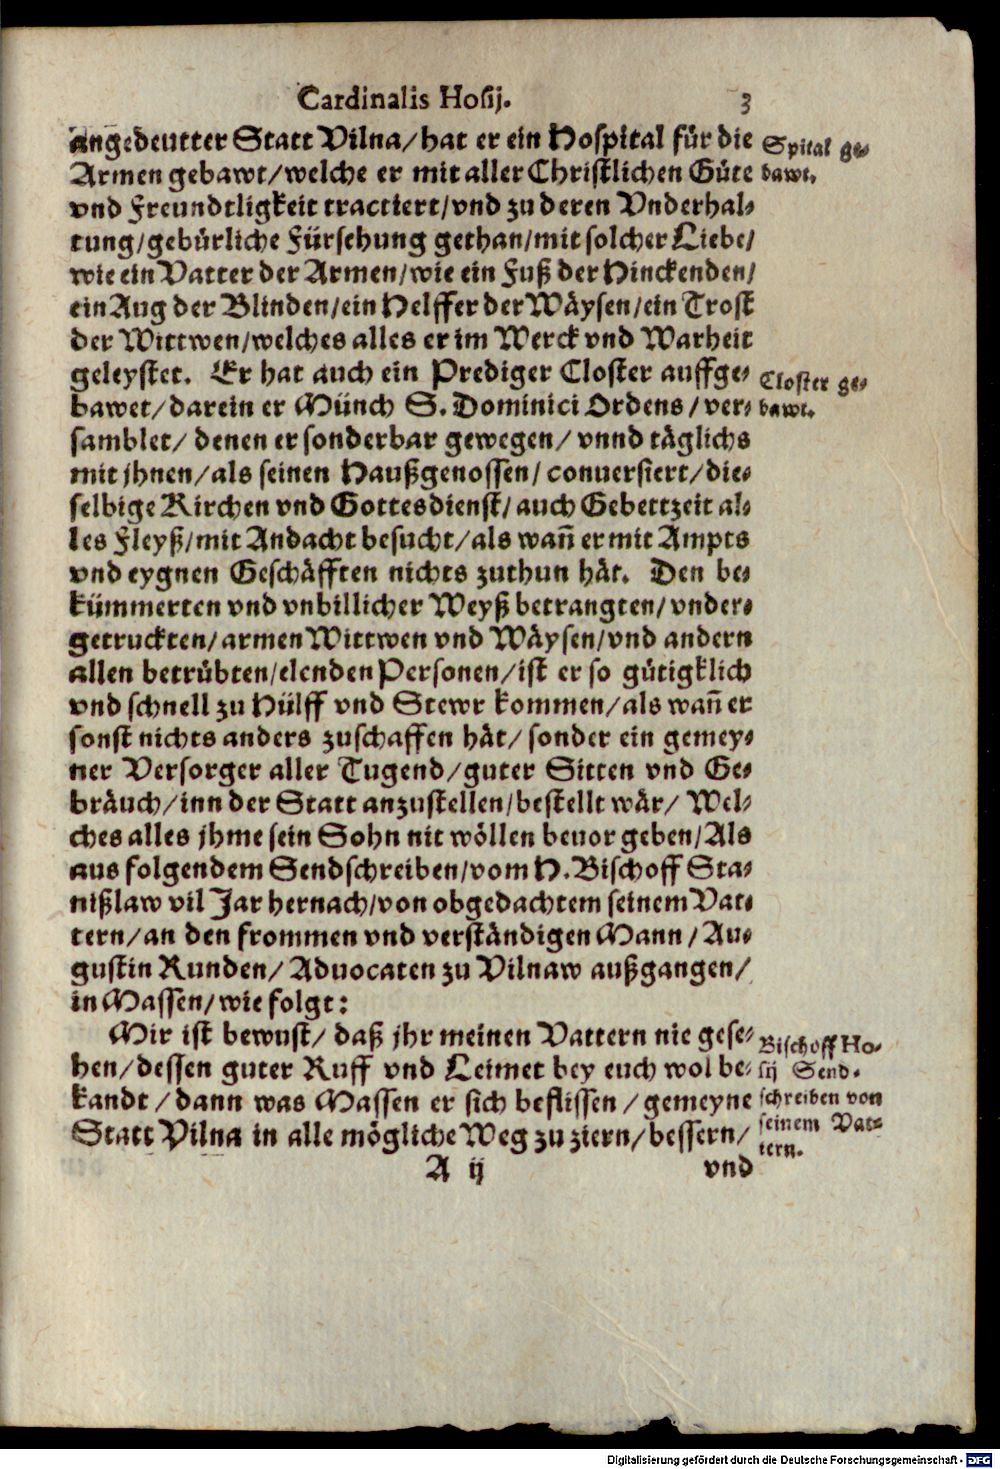 Cardinalis Hosij. 3
angedeutter Statt Vilna/hat er ein Hospital für die
Armen gebawt/welche er mit aller Christlichen Güte
vnd Freundtligkeit tractiert/vnd zu deren Vnderhal-
tung/gebürliche Fürsehung gethan/mit solcher Liebe/
wie ein Vatter der Armen/wie ein Fuß der Hinckenden/
ein Aug der Blinden/ein Helffer der Wäysen/ein Trost
der Wittwen/welches alles er im Werck vnd Warheit
geleystet. Er hat auch ein Prediger Closter auffge-
bawet/darein er Münch S. Dominici Ordens/ver-
samblet/denen er sonderbar gewegen/vnnd täglichs
mit jhnen/als seinen Haußgenossen/conuersiert/die-
selbige Kirchen vnd Gottesdienst/auch Gebettzeit al-
les Fleyß/mit Andacht besucht/als wañ er mit Ampts
vnd eygnen Geschäfften nichts zuthun hät. Den be-
kümmerten vnd vnbillicher Weyß betrangten/vnder-
getruckten/armen Wittwen vnd Wäysen/vnd andern
allen betrübten/elenden Personen/ist er so gütigklich
vnd schnell zu Hülff vnd Stewr kommen/als wañ er
sonst nichts anders zuschaffen hät/sonder ein gemey-
ner Versorger aller Tugend/guter Sitten vnd Ge-
bräuch/inn der Statt anzustellen/bestellt wär/Wel-
ches alles jhme sein Sohn nit wöllen beuor geben/Als
aus folgendem Sendschreiben/vom H. Bischoff Sta-
nißlaw vil Jar hernach/von obgedachtem seinem Vat-
tern/an den frommen vnd verständigen Mann/Au-
gustin Runden/Aduocaten zu Vilnaw außgangen/
in Massen/wie folgt:
Mir ist bewust/daß jhr meinen Vattern nie gese-
hen/dessen guter Ruff vnd Leimet bey euch wol be-
kandt/dann was Massen er sich beflissen/gemeyne
Statt Vilna in alle mögliche Weg zu ziern/bessern/
A ij vnd
Spital ge-
bawt.
Closter ge-
bawt.
Bischoff Ho-
sij Send-
schreiben von
seinem Vat-
tern.
Digitalisierung gefördert durch die Deutsche Forschungsgemeinschaft - DFG